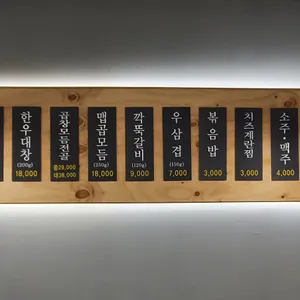 한우대창
(200g)
18,000
곱창모듬전골
중29,000
대38,000
맵곱모듬
(250g)
18,000
깍뚝갈비
(120g)
9,000
우삼겹
(150g)
7,000
볶음밥
3,000
치즈계란찜
3,000
소주·맥주
4,000